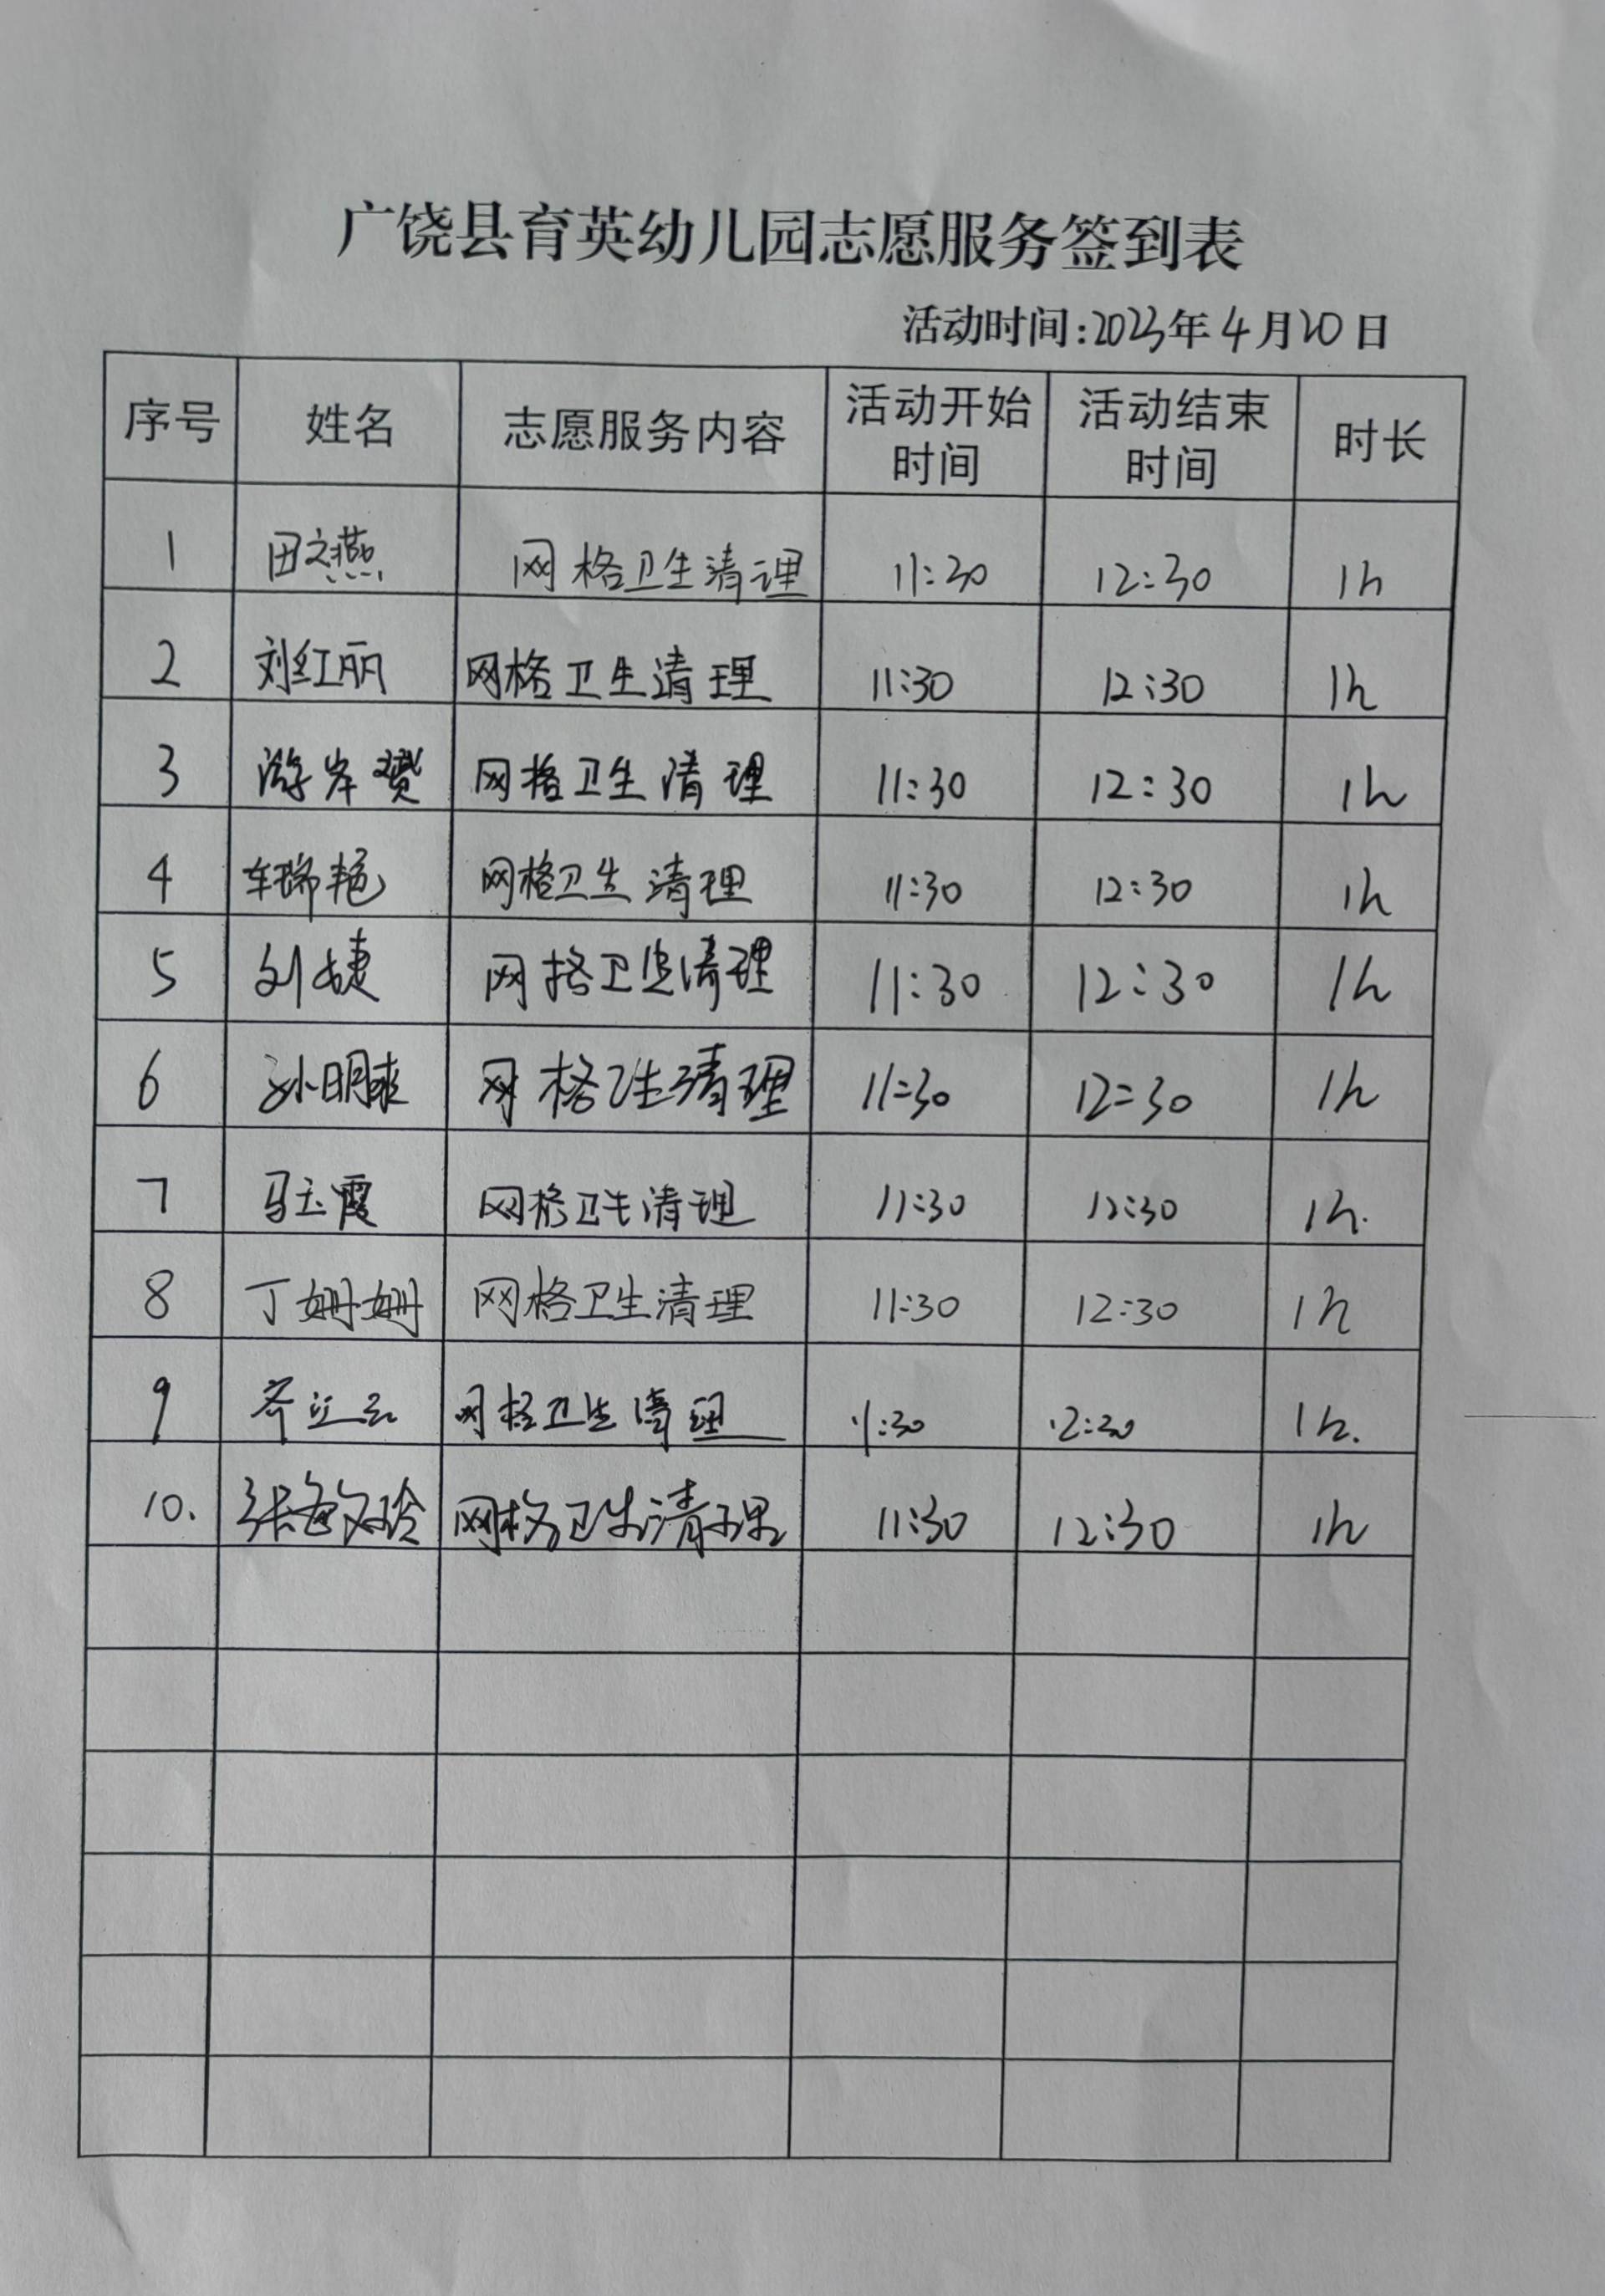 广饶县育英幼儿园志愿服务签到表
活动时间:2023年4月20日
序号 姓名 志愿服务内容 活动开始时间 活动结束时间 时长
1 田文燕 网格卫生清理 11:30 12:30 1h
2 刘红丽 网格卫生清理 11:30 12:30 1h
3 网格卫生清理 11:30 12:30 1h
4 车瑞艳 网格卫生清理 11:30 12:30 1h
5 刘婕 网格卫生清理 11:30 12:30 1h
6 网格卫生清理 11:30 12:30 1h
7 马玉霞 网格卫生清理 11:30 12:30 1h.
8 丁姗姗 网格卫生清理 11:30 12:30 1h
9 网格卫生清理 11:30 12:30 1h.
10. 网格卫生清理 11:30 12:30 1h